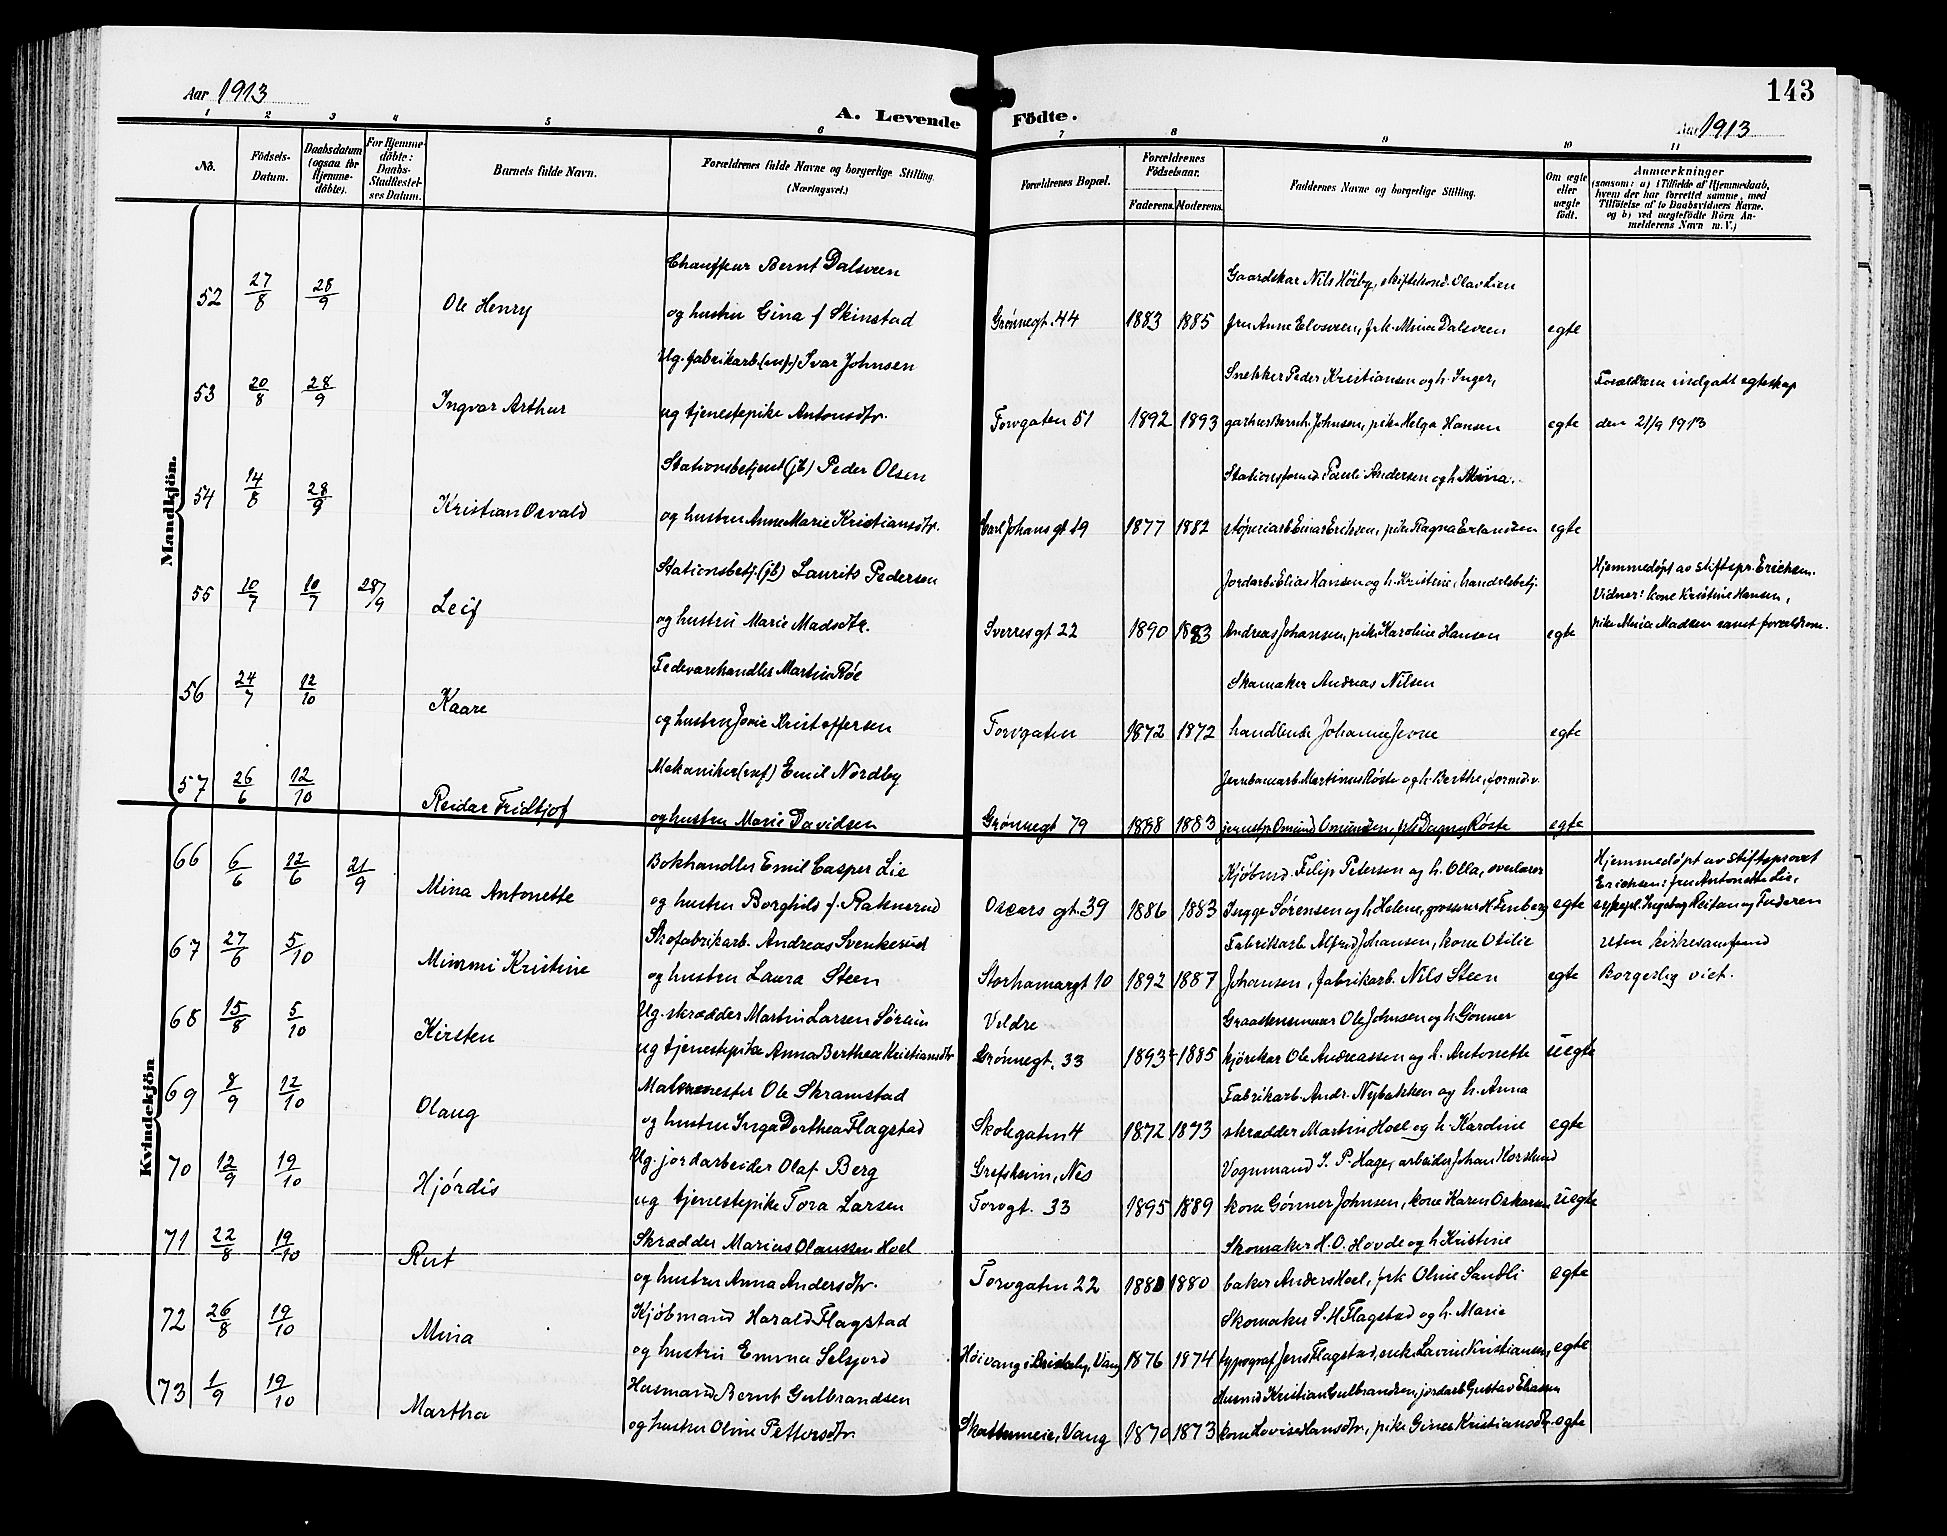 Aar 1913
A. Levende Födte.
143
Aar 1913
1 2 3 4 5 6 7 8 9 10 11
No.
Födsels-Datum.
Daabsdatum (ogsaa for Hjemme-döbte).
For Hjemme-döbte: Daabs-Stadfæstel-ses Datum.
Barnets fulde Navn.
Forældrenes fulde Navne og borgerlige Stilling. (Næringsvei.)
Forældrenes Bopæl.
Forældrenes Födselsaar.
Faderens. Moderens.
Faddernes Navne og borgerlige Stilling.
Om ægte eller uægte födt.
Anmærkninger
(saasom: a) i Tilfælde af Hjemmedaab, hvem der har forrettet samme, med Tilföielse af to Daabsvidners Navne. og b) ved uægtefödte Börn An-melderens Navn m. V.)
Mandkjön.
52 27/8 28/9 Ole Henry
Chauffeur Bernt Dalsveen
og hustru Gina f Skinstad
Grønnegt. 44 1883 1885
Gaardskar Nils Höiby, skiftekond. Olav Lien
fru Anne Elvsveen, frk. Mina Dalsveen
egte
53 20/8 28/9 Ingvar Arthur
Ug. fabrikarb. Ivar Johnsen
ug tjenestepike Antonsdtr.
Torvgaten 51 1892 1893
Snekker Peder Kristiansen og h. Inger,
Bernh. Johnsen, pike Helga Hansen
egte
Forældrene indgaat egteskap
den 21/9 1913
54 14/8 28/9 Kristian Osvald
Stationsbetjent (jb) Peder Olsen
og hustru Anne Marie Kristiansdtr.
Karl Johans gt 19 1877 1882
Stationsformd. Pauli Andersen og h
støperiarb Einar Eriksen, pike Ragna Erlandsen
egte
55 10/7 10/7 28/9 Leif
Stationsbetj. (jb) Laurits Pedersen
og hustru Marie Madsdtr.
Sverresgt 22 1890 1883
Jordarb. Elias Hansen og h. Kristine, handelsbetj.
Andreas Johansen, pike Karoline Hansen
egte
Hjemmedøpt av stiftspr. Erichsen.
Vidner: kone Kristine Hansen,
pike Maria Madsen samt forældrene.
56 24/7 12/10 Kaare
Fedevarehandler Martin Røe
og hustru Kristoffersen
Torvgaten 1872 1872
Skomaker Andreas Nilsen
handlende Johanne Jevne
egte
57 26/6 12/10 Reidar Fridtjof
Mekaniker Emil Nordby
og hustru Marie Davidsen
Grønnegt 79 1888 1883
Jernbanearb. Martinus Røste og h. Berthe, formdv.
Omund Omundsen, frk Dagny Røste
egte
Kvindekjön
66 6/6 12/6 21/9 Mina Antonette
Bokhandler Emil Casper Lie
og hustru Borghild f. Raknerud
Oscars gt. 39 1886 1883
Kjøbmd. Filip Petersen og h. Olla, overlærer
Yngge Sørensen og h Helene, grosserer H Fenberg
egte
Hjemmedøpt av stiftsprovst
Erichsen: fru Antonette Lie,
sykepl. Ingeborg Neitan og Faderen
67 27/6 5/10 Mimmi Kristine
Skofabrikarb. Andreas Svenkerud
og hustru Laura Steen
Storhamargt 10 1892 1887
Fabrikarb. Alfred Johansen, kone Otilie
Johansen, fabrikarb. Nils Steen
egte
uten kirkesamfund
Borgerlig viet.
68 15/8 5/10 Kirsten
Ug. skrædder Martin Larsen
ug tjenestepike Anna Berthea Kristiansdtr
Veldre
Grønnegt. 33 1893 1885
Ole Johnsen og h Gønner
kjörekar Ole Andreassen og h. Antonette
uegte
69 8/9 12/10 Olaug
Malermester Ole Skramstad
og hustru Inga Dorthea Flagstad
Skolegaten 4 1872 1873
Fabrikarb. Andr. Nybakken og h. Anna
skrædder Martin Hoel og h. Karoline
egte
70 12/9 19/10 Hjördis
Ug. jordarbeider Olaf Berg
ug tjenestepike Tora Larsen
Grefsheim, Nes
Torvgt. 33 1895 1889
Vognmand I. P. Hage, arbeider Johan Korslund
kone Gønner Johnsen, kone Karen Oskarsen
uegte
71 22/8 19/10 Rut
Skrædder Marius Olaussen Hoel
og hustru Anna Andersdtr.
Torvgaten 22 1880 1880
Skomaker H. O. Hovde og h Kristine
baker Anders Hoel, frk Oline Sandli
egte
72 26/8 19/10 Mina
Kjöbmand Harald Flagstad
og hustru Emma Selsjord
Höivang i Vang 1876 1874
Skomaker S. H Flagstad og h. Marie
typograf Jens Flagstad, enke Lavine Kristiansen,
egte
73 1/9 19/10 Martha
Husmand Bernt Gulbrandsen
og hustru Oline Pettersdtr.
Vang 1870 1873
Husmd Kristian Gulbrandsen, jordarb Gustav Eliassen
kone Lovise Hansdtr, pike Gina Kristiansdtr.
egte